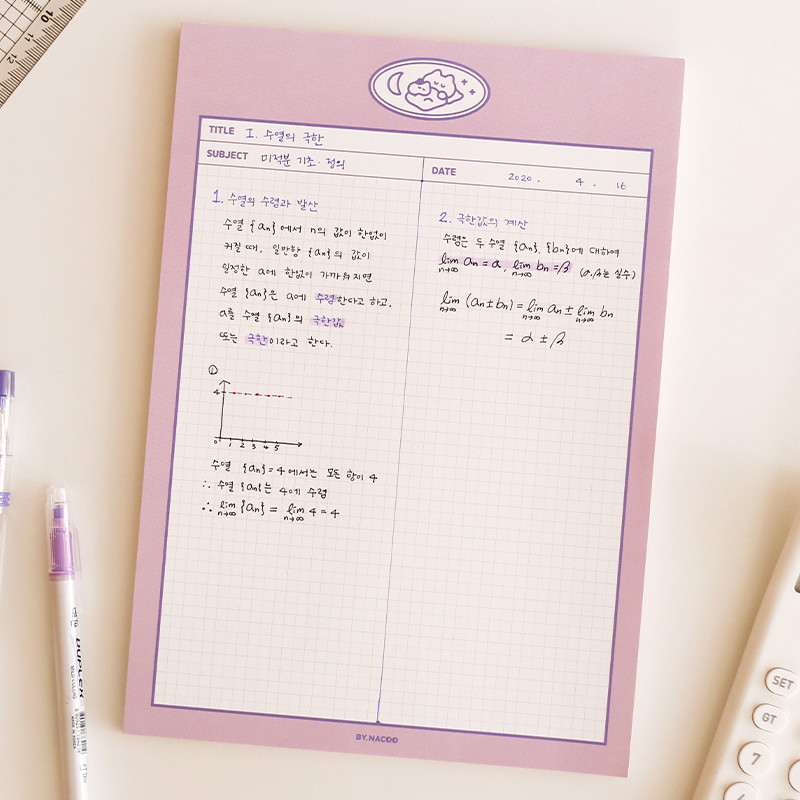 TITLE I. 수열의 극한
SUBJECT 미적분 기초·정의
DATE 2020. 4. 16
1. 수열의 수렴과 발산
수열 {an}에서 n의 값이 한없이
커질 때, 일반항 {an}의 값이
일정한 α에 한없이 가까워지면
수열 {an}은 α에 수렴한다고 하고,
α를 수열 {an}의 극한값
또는 극한이라고 한다.
①
4
0 1 2 3 4 5
수열 {an}=4에서는 모든 항이 4
∴ 수열 {an}는 4에 수렴
∴ lim n→∞ {an} = lim n→∞ 4 = 4
2. 극한값의 계산
수렴는 두 수열 {an}, {bn}에 대하여
lim n→∞ an = α, lim n→∞ bn = β (α, β는 실수)
lim n→∞ (an±bn) = lim n→∞ an ± lim n→∞ bn
= α ± β
BY.NACOO
DUPLEX
MILD COLORS
10
11
12
SET
GT
7